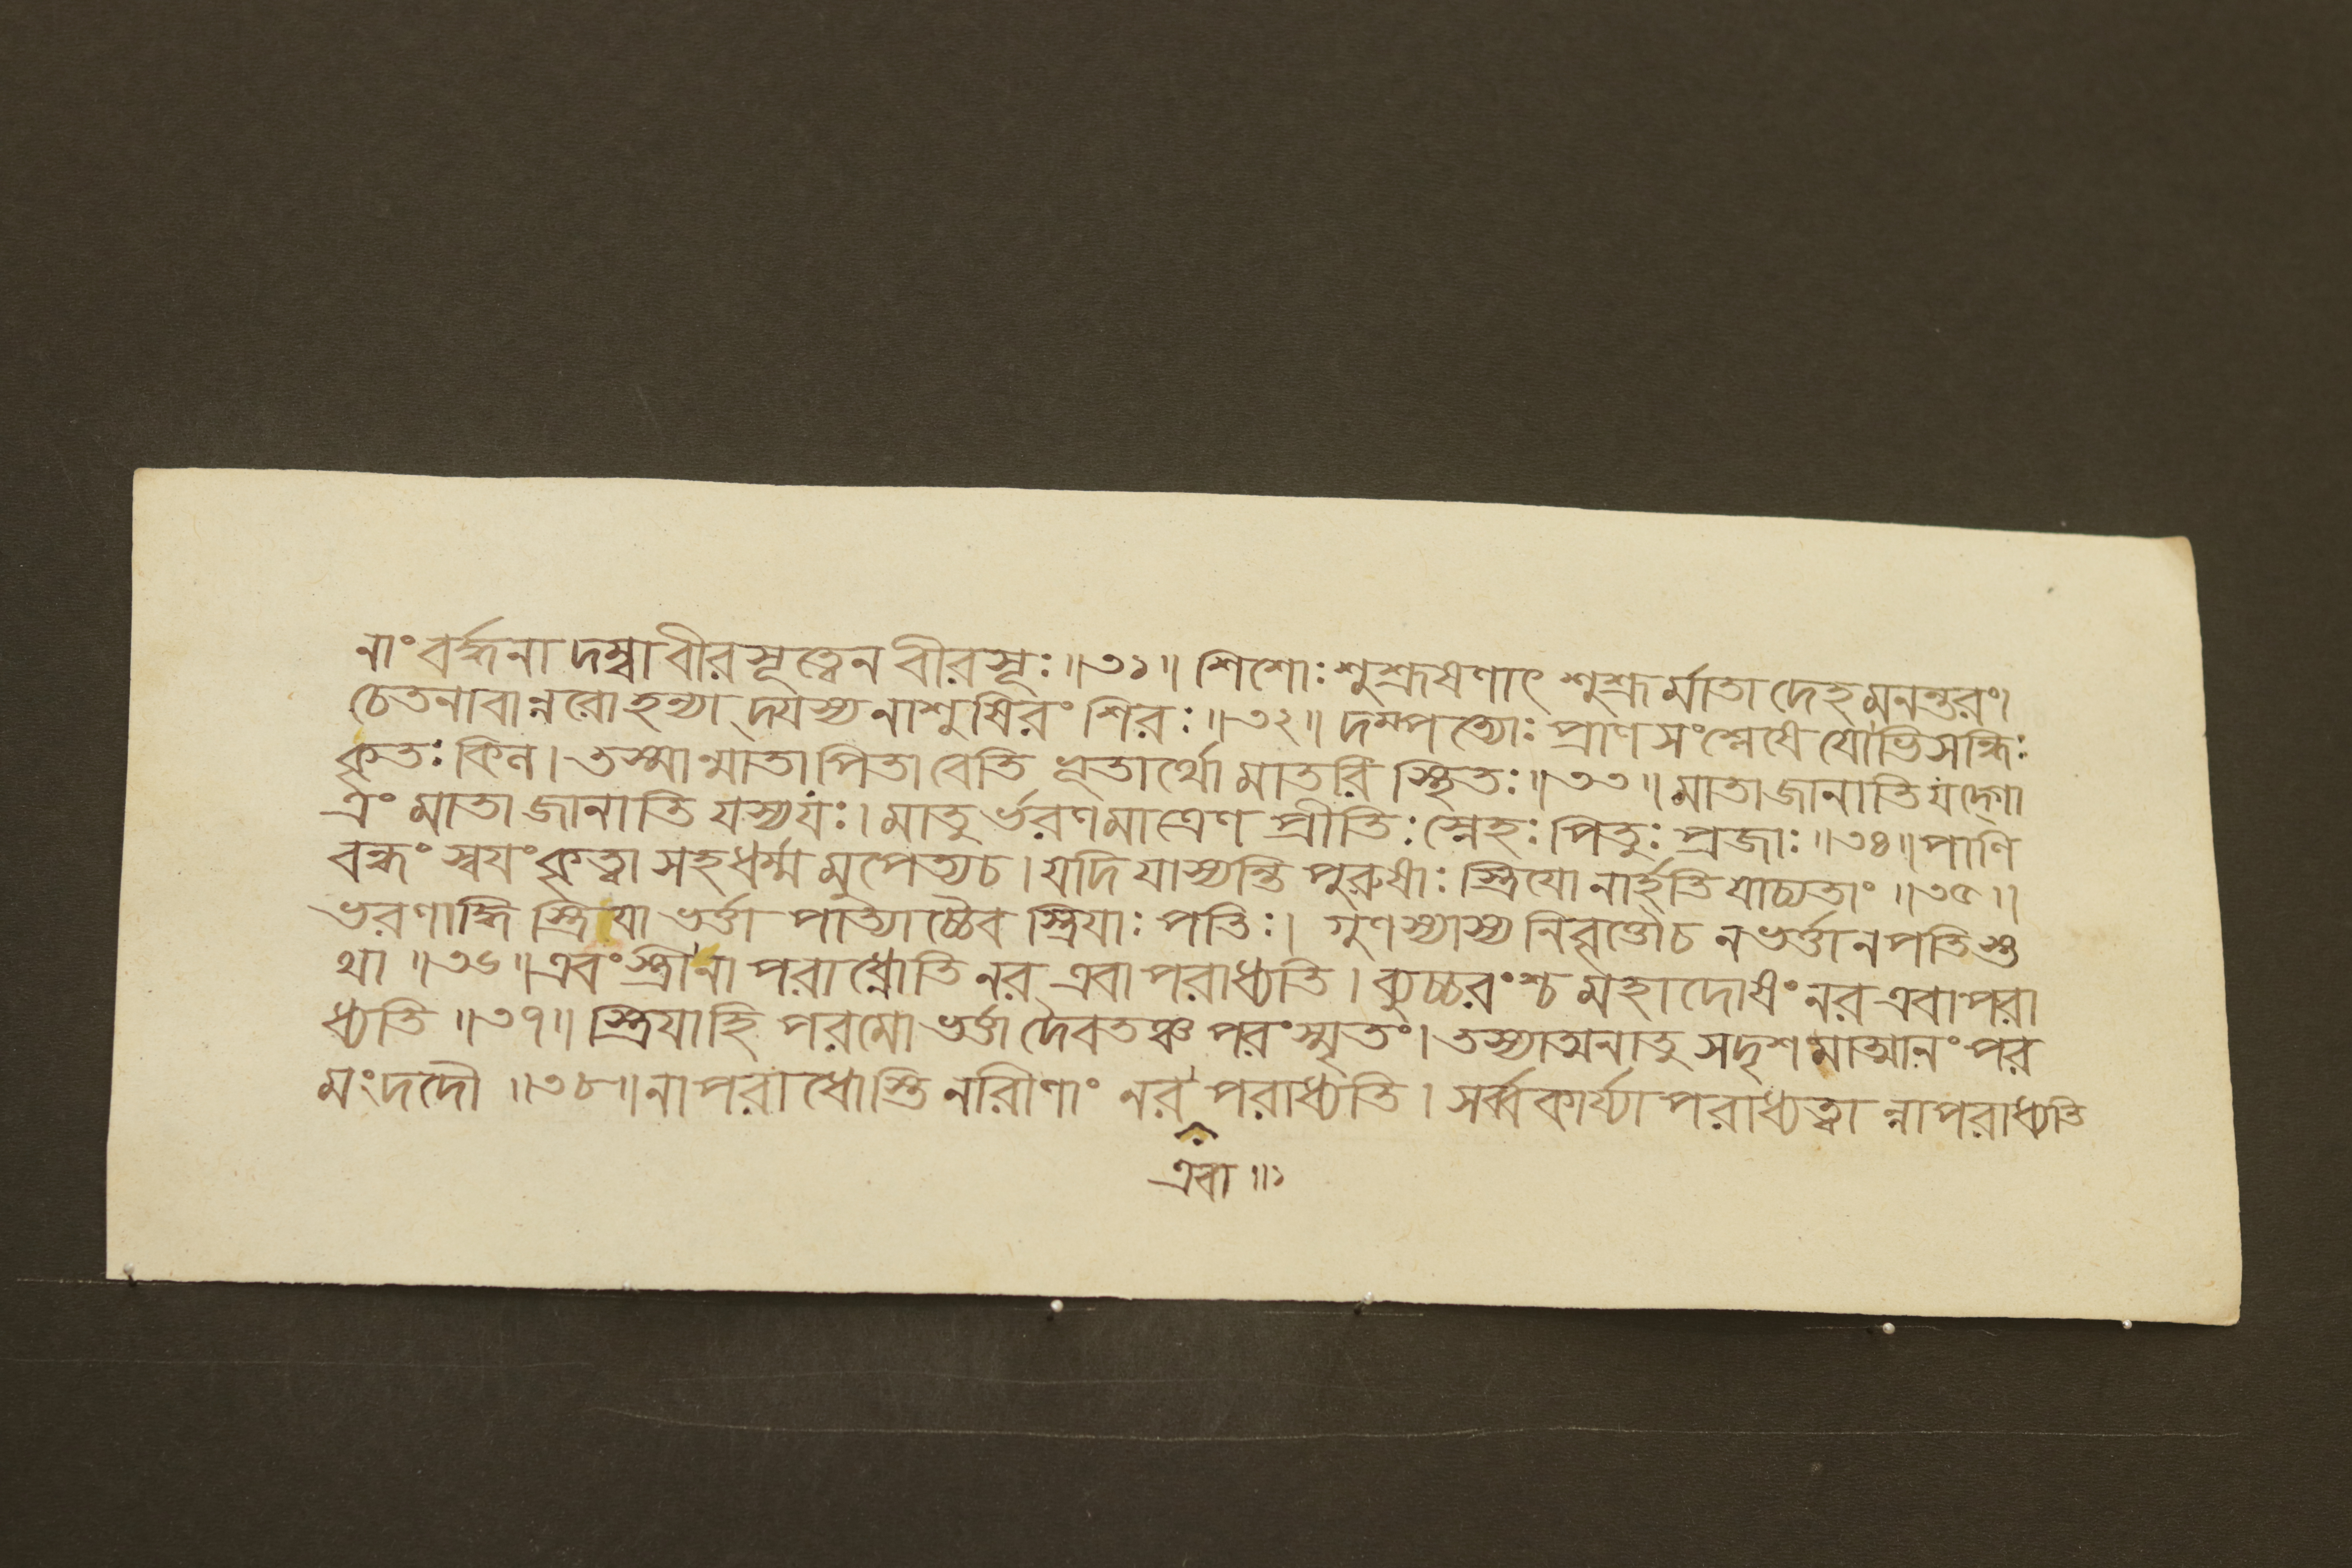 নাং বর্দ্ধনা দম্বা বীরসূত্বেন বীরসূঃ ॥৩১॥ শিশোঃ শুশ্রূষণাৎ শুশ্রূর্মাতা দেহমনন্তরং।
চেতনাবান্নরোহন্যা দ্যস্য নাশুষিরং শিরঃ ॥৩২॥ দম্পত্যোঃ প্রাণসংশ্লেষে যোভিসন্ধিঃ
কৃতঃ কিল। তস্মান্মাতা পিতা বেতি ভূতার্থো মাতরি স্থিতঃ ॥৩৩॥ মাতা জানাতি যদ্গো
ত্রং মাতা জানাতি যস্যযঃ। মাতুর্ভরণমাত্রেণ প্রীতিঃ স্নেহঃ পিতুঃ প্রজাঃ ॥৩৪॥ পাণি
বন্ধং স্বযং কৃত্বা সহধর্ম্ম মুপেত্যচ। যদি যাস্যন্তি পুরুষাঃ স্ত্রিযো নার্হতি যাচ্যতাং ॥৩৫॥
ভরণাদ্ধি স্ত্রিযা ভর্ত্তা পাত্যাচ্চৈব স্ত্রিযাঃ পতিঃ। গুণস্যাস্য নিবৃত্তৌচ নভর্ত্তা নপতিস্ত
থা ॥৩৬॥ এবং স্ত্রী না পরাধ্নোতি নর এবাপরাধ্যতি। ব্যুচ্চরংশ্চ মহাদোষং নর এবাপরা
ধ্যতি ॥৩৭॥ স্ত্রিযাহি পরমো ভর্ত্তা দৈবতঞ্চ পরংস্মৃতং। তস্যাত্মনাতু সদৃশমাত্মানং পর
মংদদৌ ॥৩৮॥ নাপরাধোস্তি নরীণাং নর পরাধ্যতি। সর্ব্বকার্য্যাপরাধ্যত্বা ন্নাপরাধ্যতি
এবা ॥১